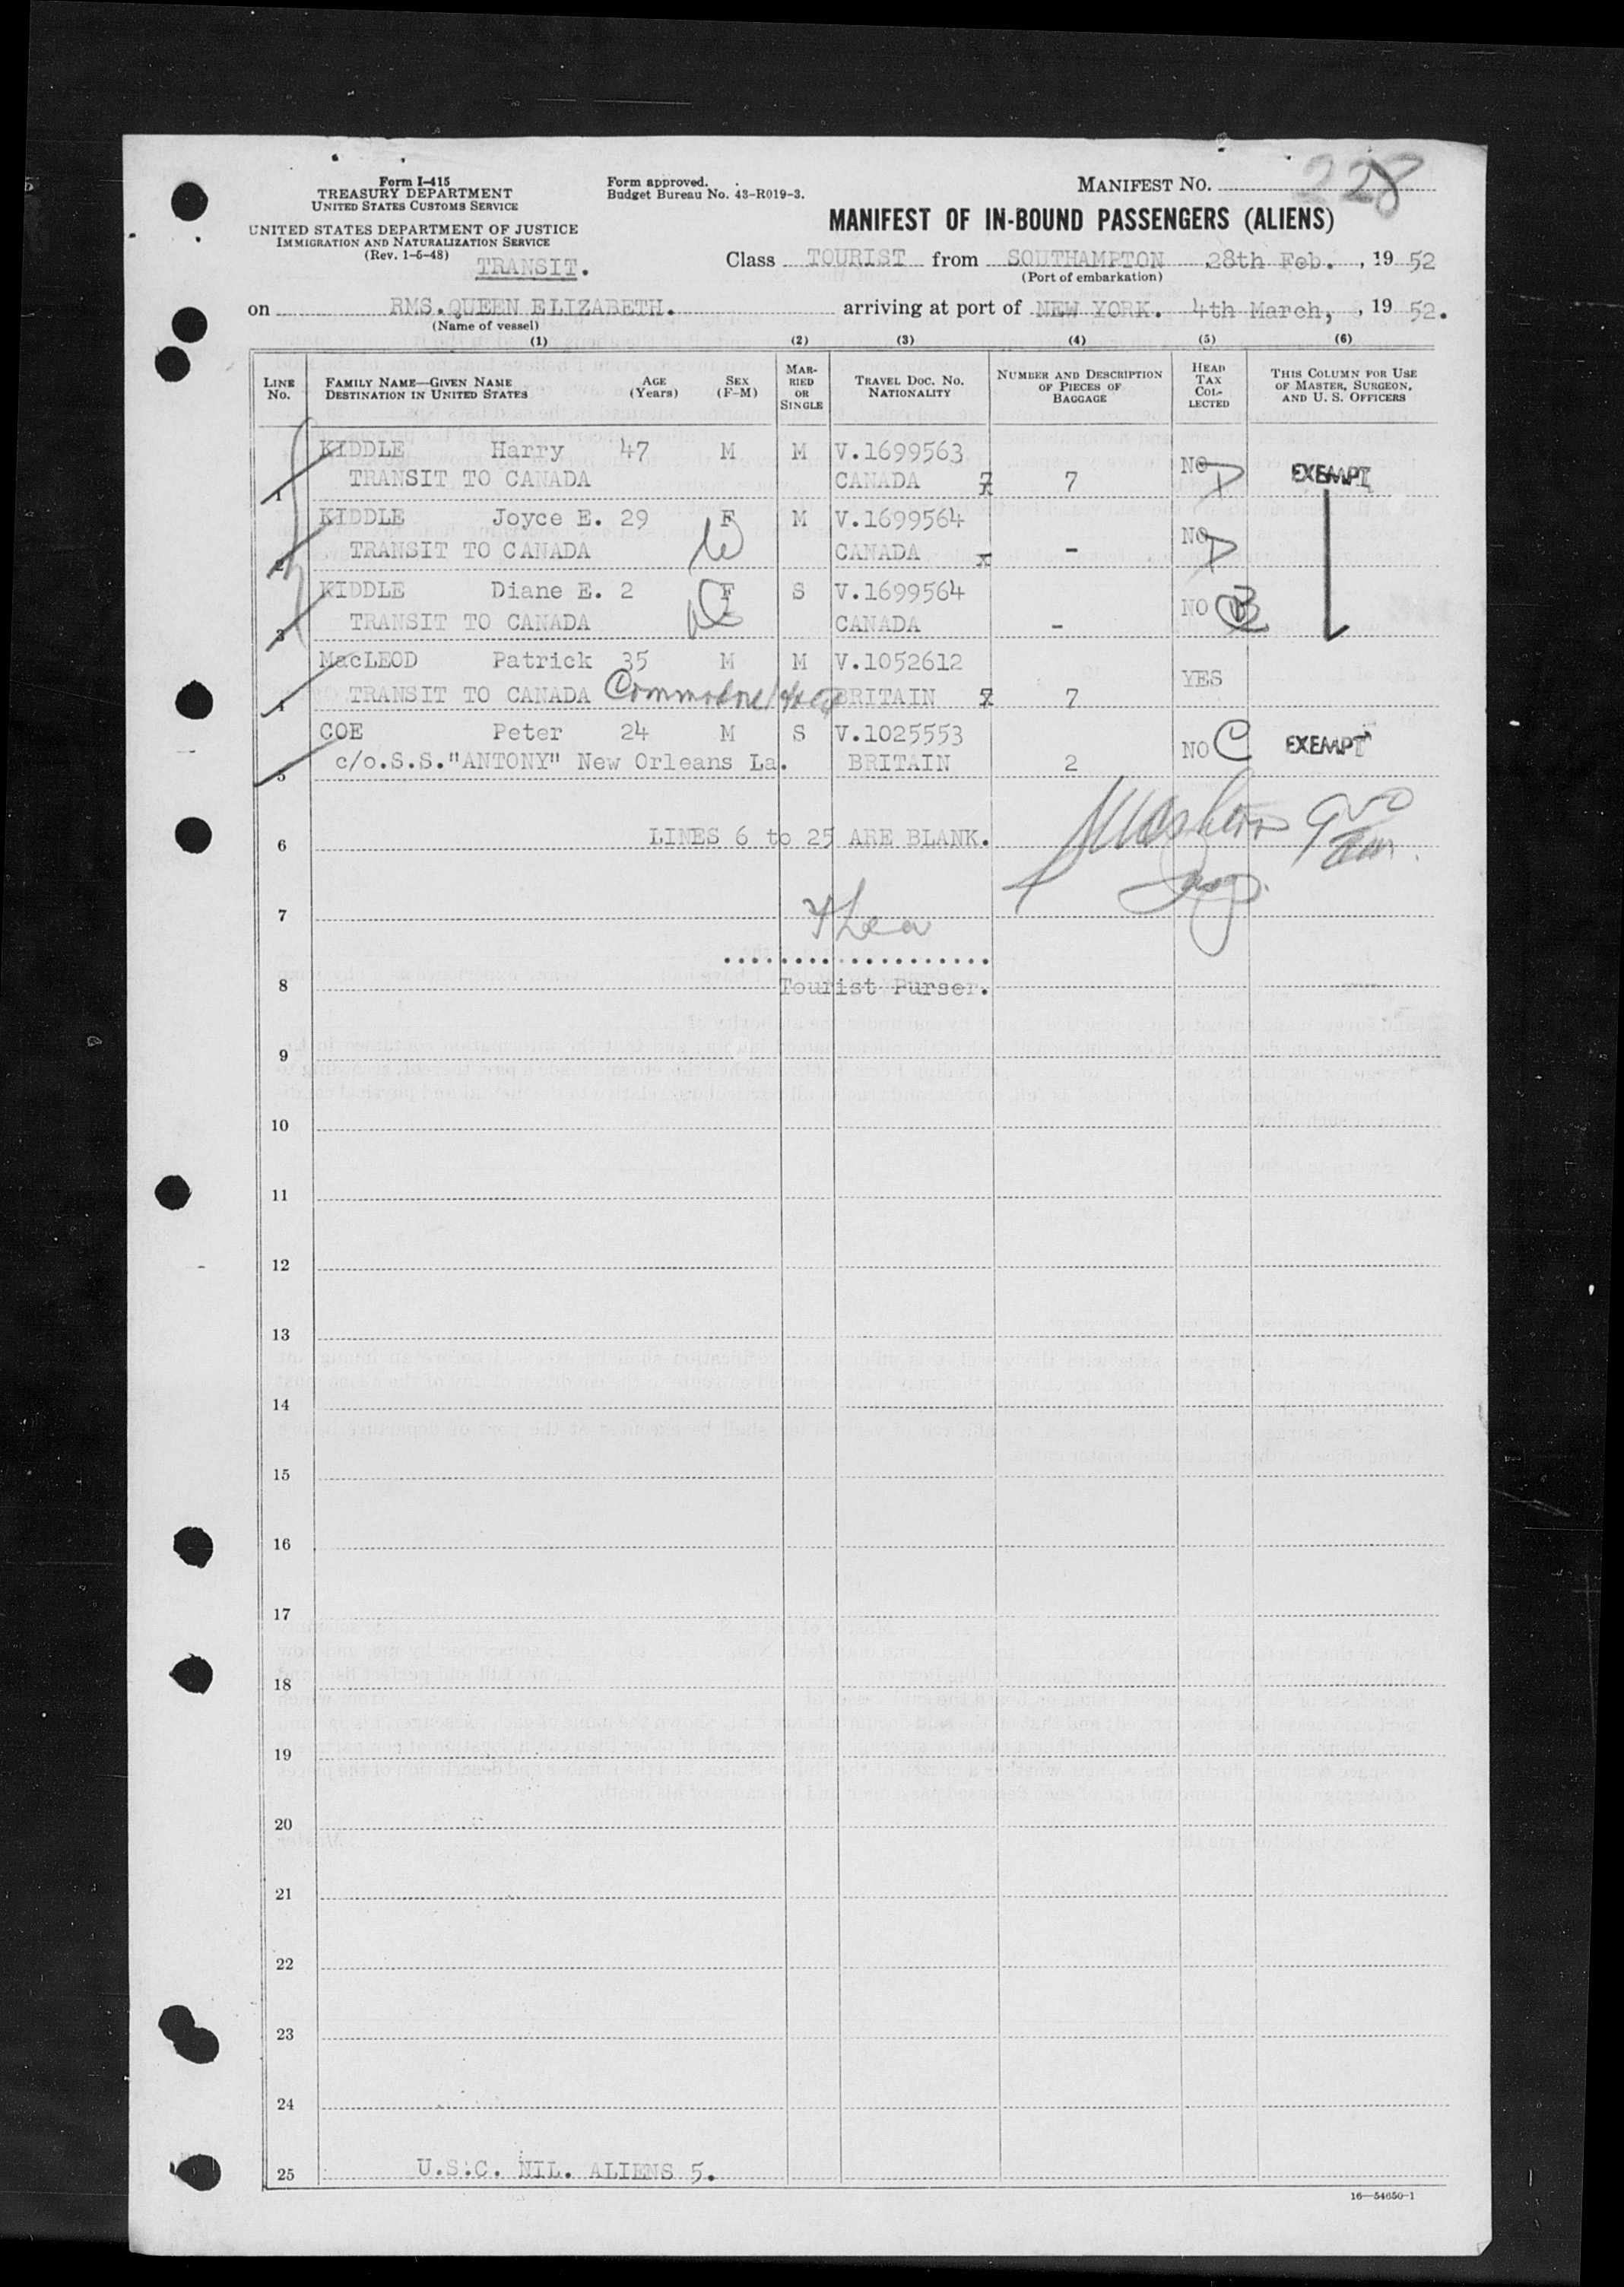 Form I-415
TREASURY DEPARTMENT
UNITED STATES CUSTOMS SERVICE
UNITED STATES DEPARTMENT OF JUSTICE
IMMIGRATION AND NATURALIZATION SERVICE
(Rev. 1-6-48)
TRANSIT.
Form approved.
Budget Bureau No. 43-R019-3.
MANIFEST NO. 228
MANIFEST OF IN-BOUND PASSENGERS (ALIENS)
Class TOURIST from SOUTHAMPTON 28th Feb. , 19 52
(Port of embarkation)
on RMS.QUEEN ELIZABETH. arriving at port of NEW YORK. 4th March, , 19 52.
(Name of vessel)
(1) (2) (3) (4) (5) (6)
LINE No. FAMILY NAME—GIVEN NAME DESTINATION IN UNITED STATES AGE (Years) SEX (F-M) MARRIED OR SINGLE TRAVEL DOC. NO. NATIONALITY NUMBER AND DESCRIPTION OF PIECES OF BAGGAGE HEAD TAX COLLECTED THIS COLUMN FOR USE OF MASTER, SURGEON, AND U. S. OFFICERS
KIDDLE Harry 47 M M V.1699563
1 TRANSIT TO CANADA CANADA 7 NO EXEMPT
KIDDLE Joyce E. 29 F M V.1699564
2 TRANSIT TO CANADA CANADA x - NO
KIDDLE Diane E. 2 F S V.1699564
3 TRANSIT TO CANADA CANADA - NO
MacLEOD Patrick 35 M M V.1052612
4 TRANSIT TO CANADA Commodore BRITAIN 7 YES
COE Peter 24 M S V.1025553
5 c/o.S.S."ANTONY" New Orleans La. BRITAIN 2 NO C EXEMPT
6 LINES 6 to 25 ARE BLANK.
7
8 Tourist Purser.
9
10
11
12
13
14
15
16
17
18
19
20
21
22
23
24
25 U.S.C. NIL. ALIENS 5.
16—54650-1